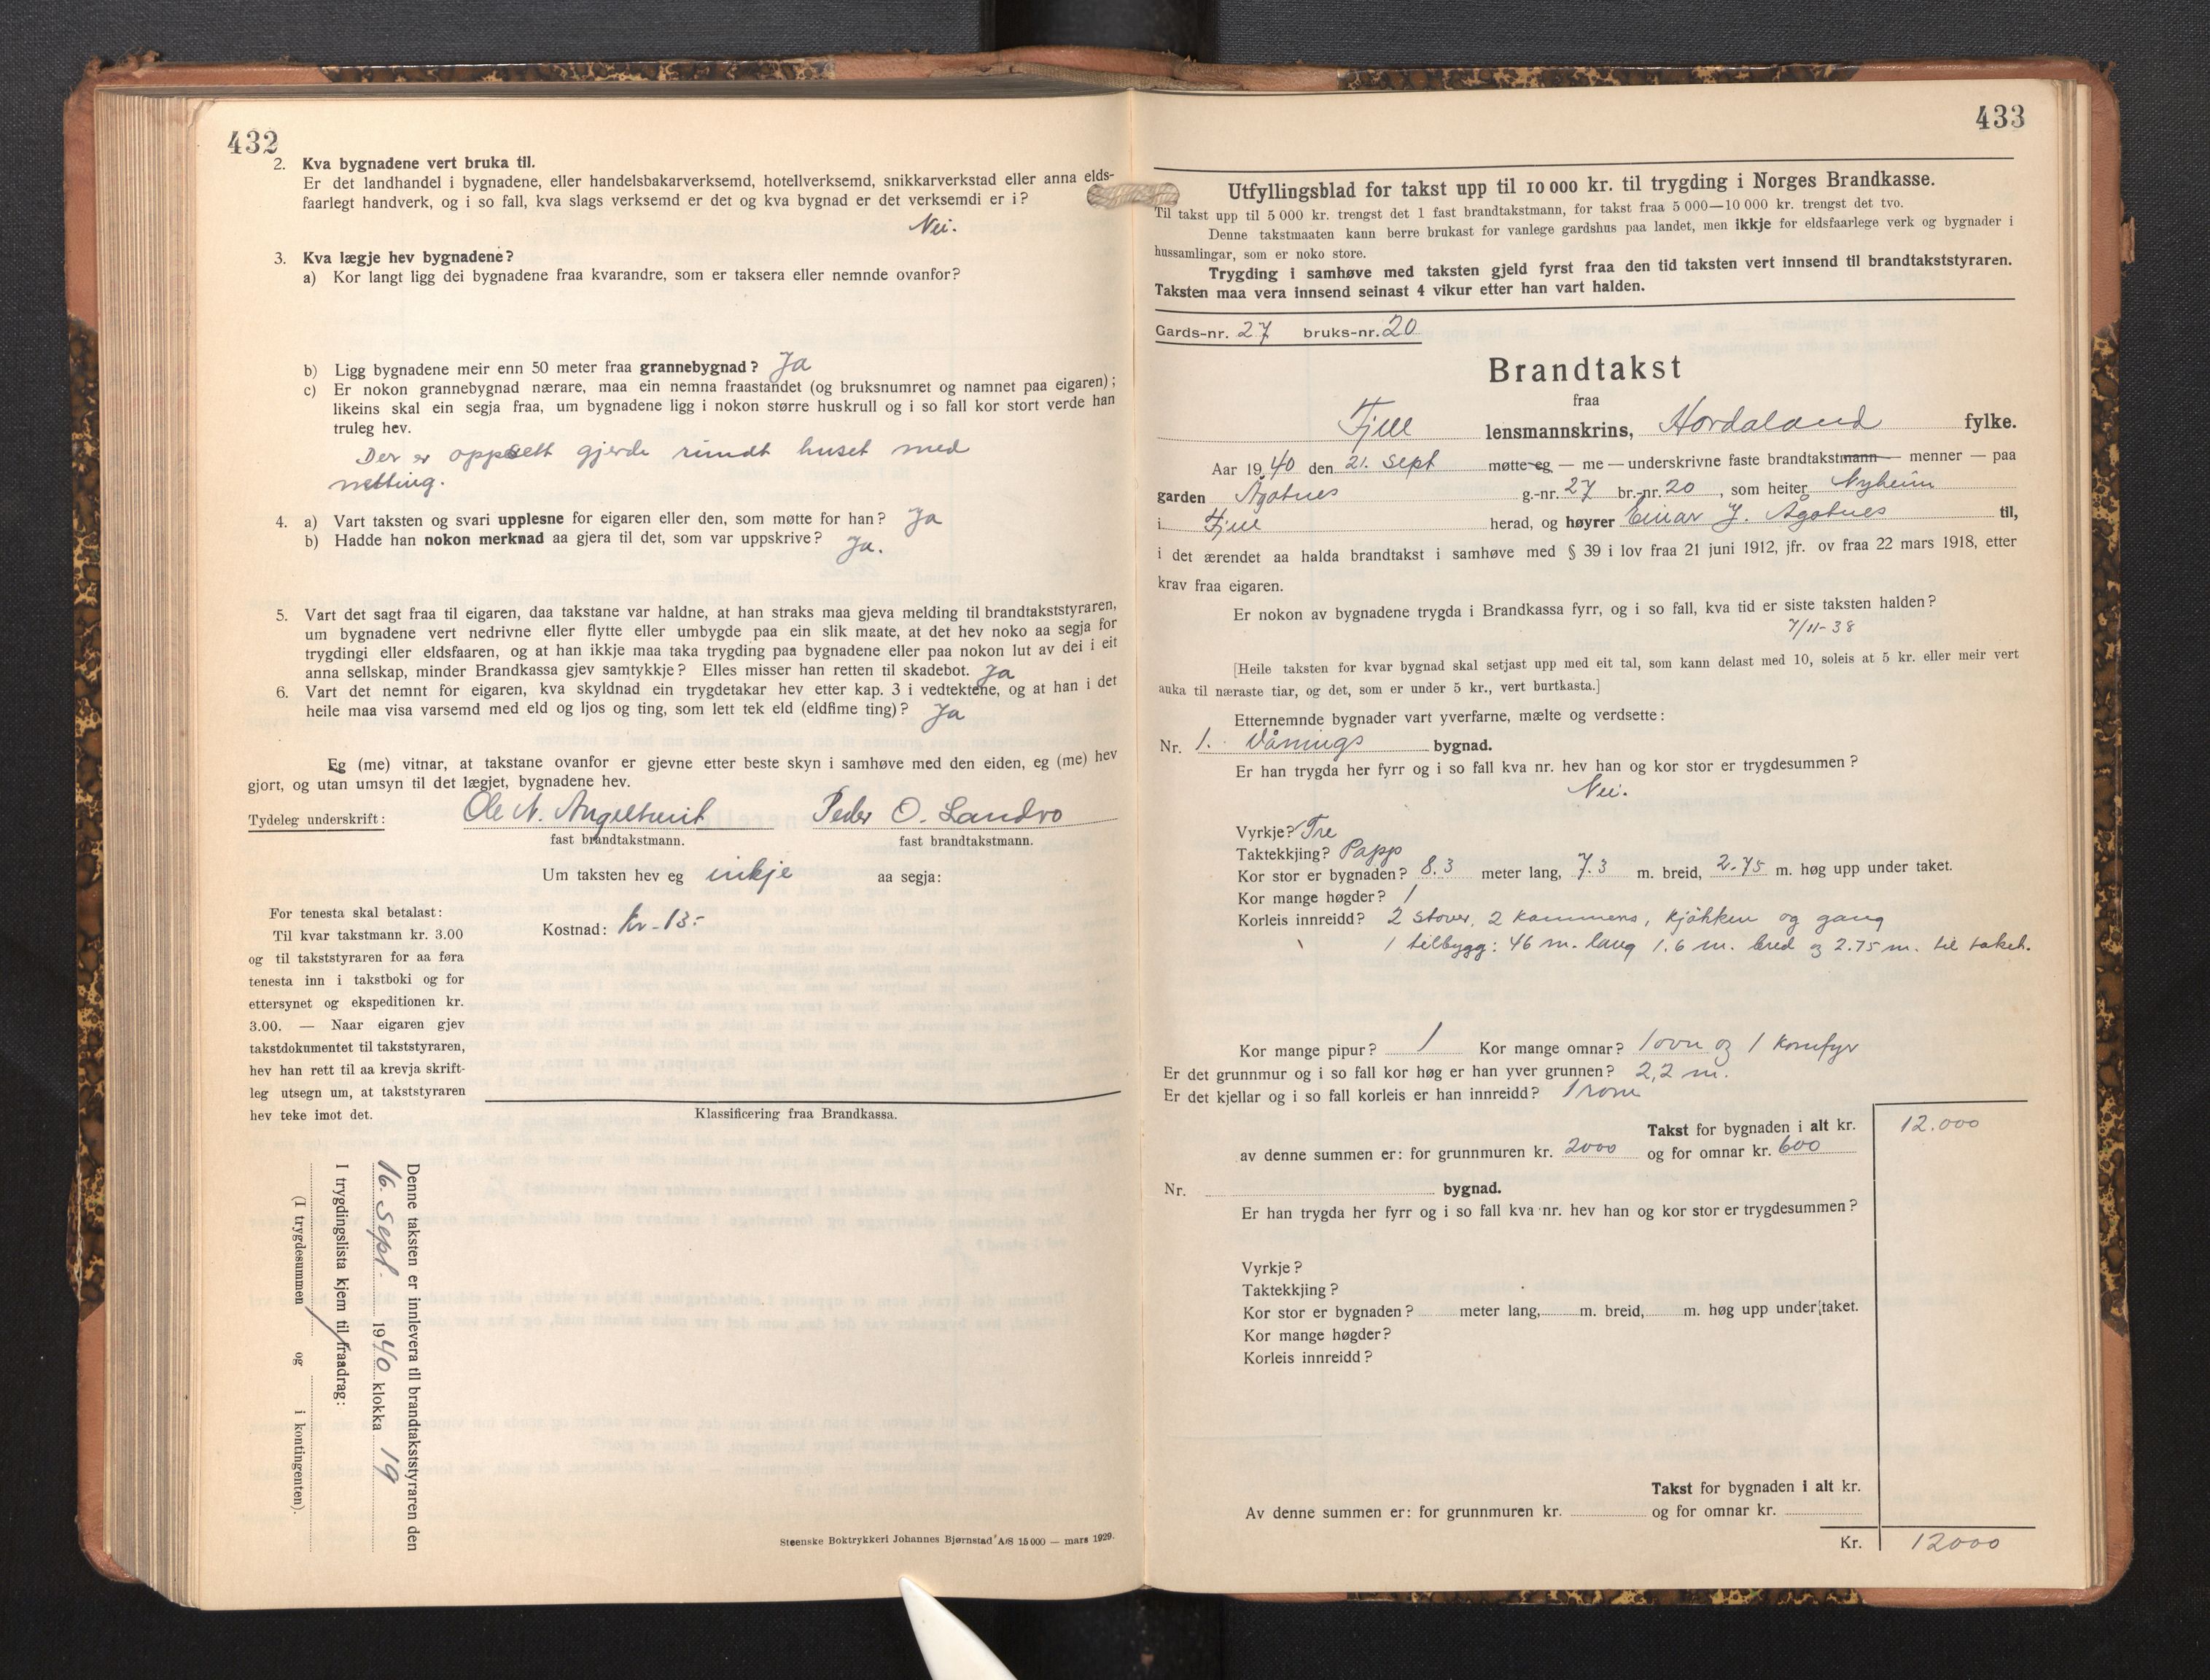 432
2. Kva bygnadene vert bruka til.
Er det landhandel i bygnadene, eller handelsbakarverksemd, hotellverksemd, snikkarverkstad eller anna elds-
faarlegt handverk, og i so fall, kva slags verksemd er det og kva bygnad er det verksemdi er i?
Nei.
3. Kva lægje hev bygnadene?
a) Kor langt ligg dei bygnadene fraa kvarandre, som er taksera eller nemnde ovanfor?
b) Ligg bygnadene meir enn 50 meter fraa grannebygnad? Ja
c) Er nokon grannebygnad nærare, maa ein nemna fraastandet (og bruksnumret og namnet paa eigaren);
likeins skal ein segja fraa, um bygnadene ligg i nokon større huskrull og i so fall kor stort verde han
truleg hev.
Der er oppsett gjerde rundt huset med
netting.
4. a) Vart taksten og svari upplesne for eigaren eller den, som møtte for han? Ja
b) Hadde han nokon merknad aa gjera til det, som var uppskrive? Ja.
5. Vart det sagt fraa til eigaren, daa takstane var haldne, at han straks maa gjeva melding til brandtakststyraren,
um bygnadene vert nedrivne eller flytte eller umbygde paa ein slik maate, at det hev noko aa segja for
trygdingi eller eldsfaaren, og at han ikkje maa taka trygding paa bygnadene eller paa nokon lut av dei i eit
anna sellskap, minder Brandkassa gjev samtykkje? Elles misser han retten til skadebot. Ja
6. Vart det nemnt for eigaren, kva skyldnad ein trygdetakar hev etter kap. 3 i vedtektene, og at han i det
heile maa visa varsemd med eld og ljos og ting, som lett tek eld (eldfime ting)? Ja
Eg (me) vitnar, at takstane ovanfor er gjevne etter beste skyn i samhøve med den eiden, eg (me) hev
gjort, og utan umsyn til det lægjet, bygnadene hev.
Tydeleg underskrift: Ole N. Angeltveit Peder O. Landro
fast brandtakstmann. fast brandtakstmann.
Um taksten hev eg inkje aa segja:
Kostnad: kr - 13.-
For tenesta skal betalast:
Til kvar takstmann kr. 3.00
og til takststyraren for aa føra
tenesta inn i takstboki og for
ettersynet og ekspeditionen kr.
3.00. — Naar eigaren gjev
takstdokumentet til takststyraren,
hev han rett til aa krevja skrift-
leg utsegn um, at takststyraren
hev teke imot det.
Klassificering fraa Brandkassa.
Denne taksten er innlevera til brandtakststyraren den
16. sept. 1940 klokka 19
I trygdingslista kjem til fraadrag:
(I trygdesummen og i kontingenten).
Steenske Boktrykkeri Johannes Bjørnstad A/S 15 000 — mars 1929.
433
Utfyllingsblad for takst upp til 10 000 kr. til trygding i Norges Brandkasse.
Til takst upp til 5 000 kr. trengst det 1 fast brandtakstmann, for takst fraa 5 000—10 000 kr. trengst det tvo.
Denne takstmaaten kann berre brukast for vanlege gardshus paa landet, men ikkje for eldsfaarlege verk og bygnader i
hussamlingar, som er noko store.
Trygding i samhøve med taksten gjeld fyrst fraa den tid taksten vert innsend til brandtakststyraren.
Taksten maa vera innsend seinast 4 vikur etter han vart halden.
Gards-nr. 27 bruks-nr. 20
Brandtakst
fraa
Fjell lensmannskrins, Hordaland fylke.
Aar 1940 den 21. sept møtte eg — me — underskrivne faste brandtakstmann — menner — paa
garden Ågotnes g.-nr. 27 br.-nr. 20, som heiter Nyheim
i Fjell herad, og høyrer Einar J. Ågotnes til,
i det ærendet aa halda brandtakst i samhøve med § 39 i lov fraa 21 juni 1912, jfr. ov fraa 22 mars 1918, etter
krav fraa eigaren.
Er nokon av bygnadene trygda i Brandkassa fyrr, og i so fall, kva tid er siste taksten halden?
7/11-38
[Heile taksten for kvar bygnad skal setjast upp med eit tal, som kann delast med 10, soleis at 5 kr. eller meir vert
auka til næraste tiar, og det, som er under 5 kr., vert burtkasta.]
Etternemnde bygnader vart yverfarne, mælte og verdsette:
Nr. 1. Vånings bygnad.
Er han trygda her fyrr og i so fall kva nr. hev han og kor stor er trygdesummen?
Nei.
Vyrkje? Tre
Taktekkjing? Papp
Kor stor er bygnaden? 8.3 meter lang, 7.3 m. breid, 2.75 m. høg upp under taket.
Kor mange høgder? 1
Korleis innreidd? 2 stover, 2 kammers, kjøkken og gang
1 tilbygg: 46 m. lang 1.6 m. bred og 2.75 m. til taket.
Kor mange pipur? 1 Kor mange omnar? 1 ovn og 1 komfyr
Er det grunnmur og i so fall kor høg er han yver grunnen? 2,2 m.
Er det kjellar og i so fall korleis er han innreidd? 1 rom
Takst for bygnaden i alt kr. 12.000
av denne summen er: for grunnmuren kr. 2000 og for omnar kr. 600
Nr. bygnad.
Er han trygda her fyrr og i so fall kva nr. hev han og kor stor er trygdesummen?
Vyrkje?
Taktekkjing?
Kor stor er bygnaden? meter lang, m. breid, m. høg upp under taket.
Kor mange høgder?
Korleis innreidd?
Takst for bygnaden i alt kr.
Av denne summen er: for grunnmuren kr. og for omnar kr.
Kr. 12000